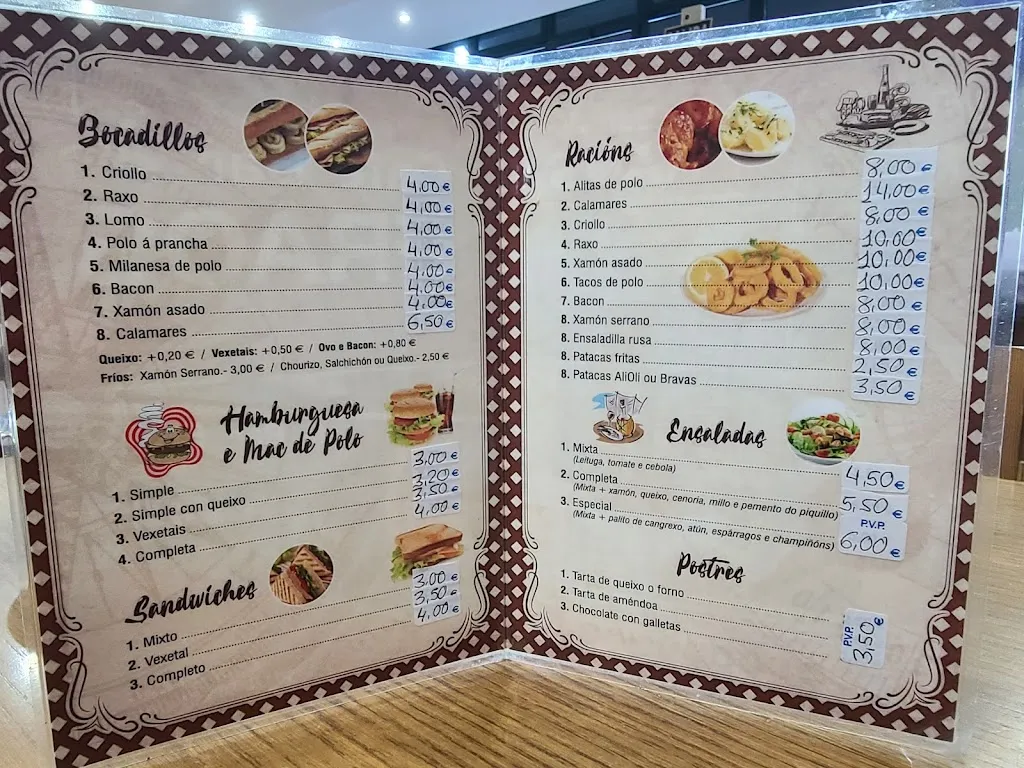 Bocadillos
1. Criollo 4,00 €
2. Raxo 4,00 €
3. Lomo 4,00 €
4. Polo á prancha 4,00 €
5. Milanesa de polo 4,00 €
6. Bacon 4,00 €
7. Xamón asado 4,00 €
8. Calamares 6,50 €
Queixo: +0,20 € / Vexetais: +0,50 € / Ovo e Bacon: +0,80 €
Fríos: Xamón Serrano.- 3,00 € / Chourizo, Salchichón ou Queixo.- 2,50 €
Hamburguesa
e Mac de Polo
1. Simple 3,00 €
2. Simple con queixo 3,20 €
3. Vexetais 3,50 €
4. Completa 4,00 €
Sandwiches
1. Mixto 3,00 €
2. Vexetal 3,50 €
3. Completo 4,00 €
Racións
1. Alitas de polo 8,00 €
2. Calamares 14,00 €
3. Criollo 8,00 €
4. Raxo 10,00 €
5. Xamón asado 10,00 €
6. Tacos de polo 10,00 €
7. Bacon 8,00 €
8. Xamón serrano 8,00 €
8. Ensaladilla rusa 8,00 €
8. Patacas fritas 2,50 €
8. Patacas AliOli ou Bravas 3,50 €
Ensaladas
1. Mixta 4,50 €
(Leituga, tomate e cebola)
2. Completa 5,50 €
(Mixta + xamón, queixo, cenoria, millo e pemento do piquillo)
3. Especial P.V.P. 6,00 €
(Mixta + palito de cangrexo, atún, espárragos e champiñóns)
Postres
1. Tarta de queixo o forno
2. Tarta de améndoa
3. Chocolate con galletas
P.V.P. 3,50 €